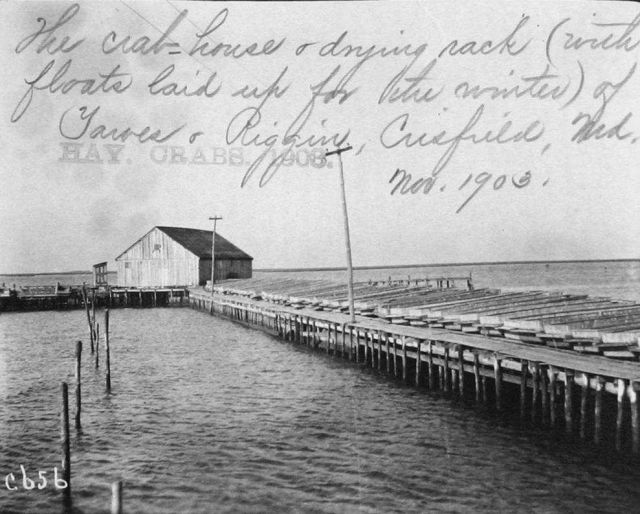 The crab-house & drying rack (with
floats laid up for the winter) of
Tawes & Riggin, Crisfield, Md.
HAY. CRABS. 1903.
Nov. 1903.
C656